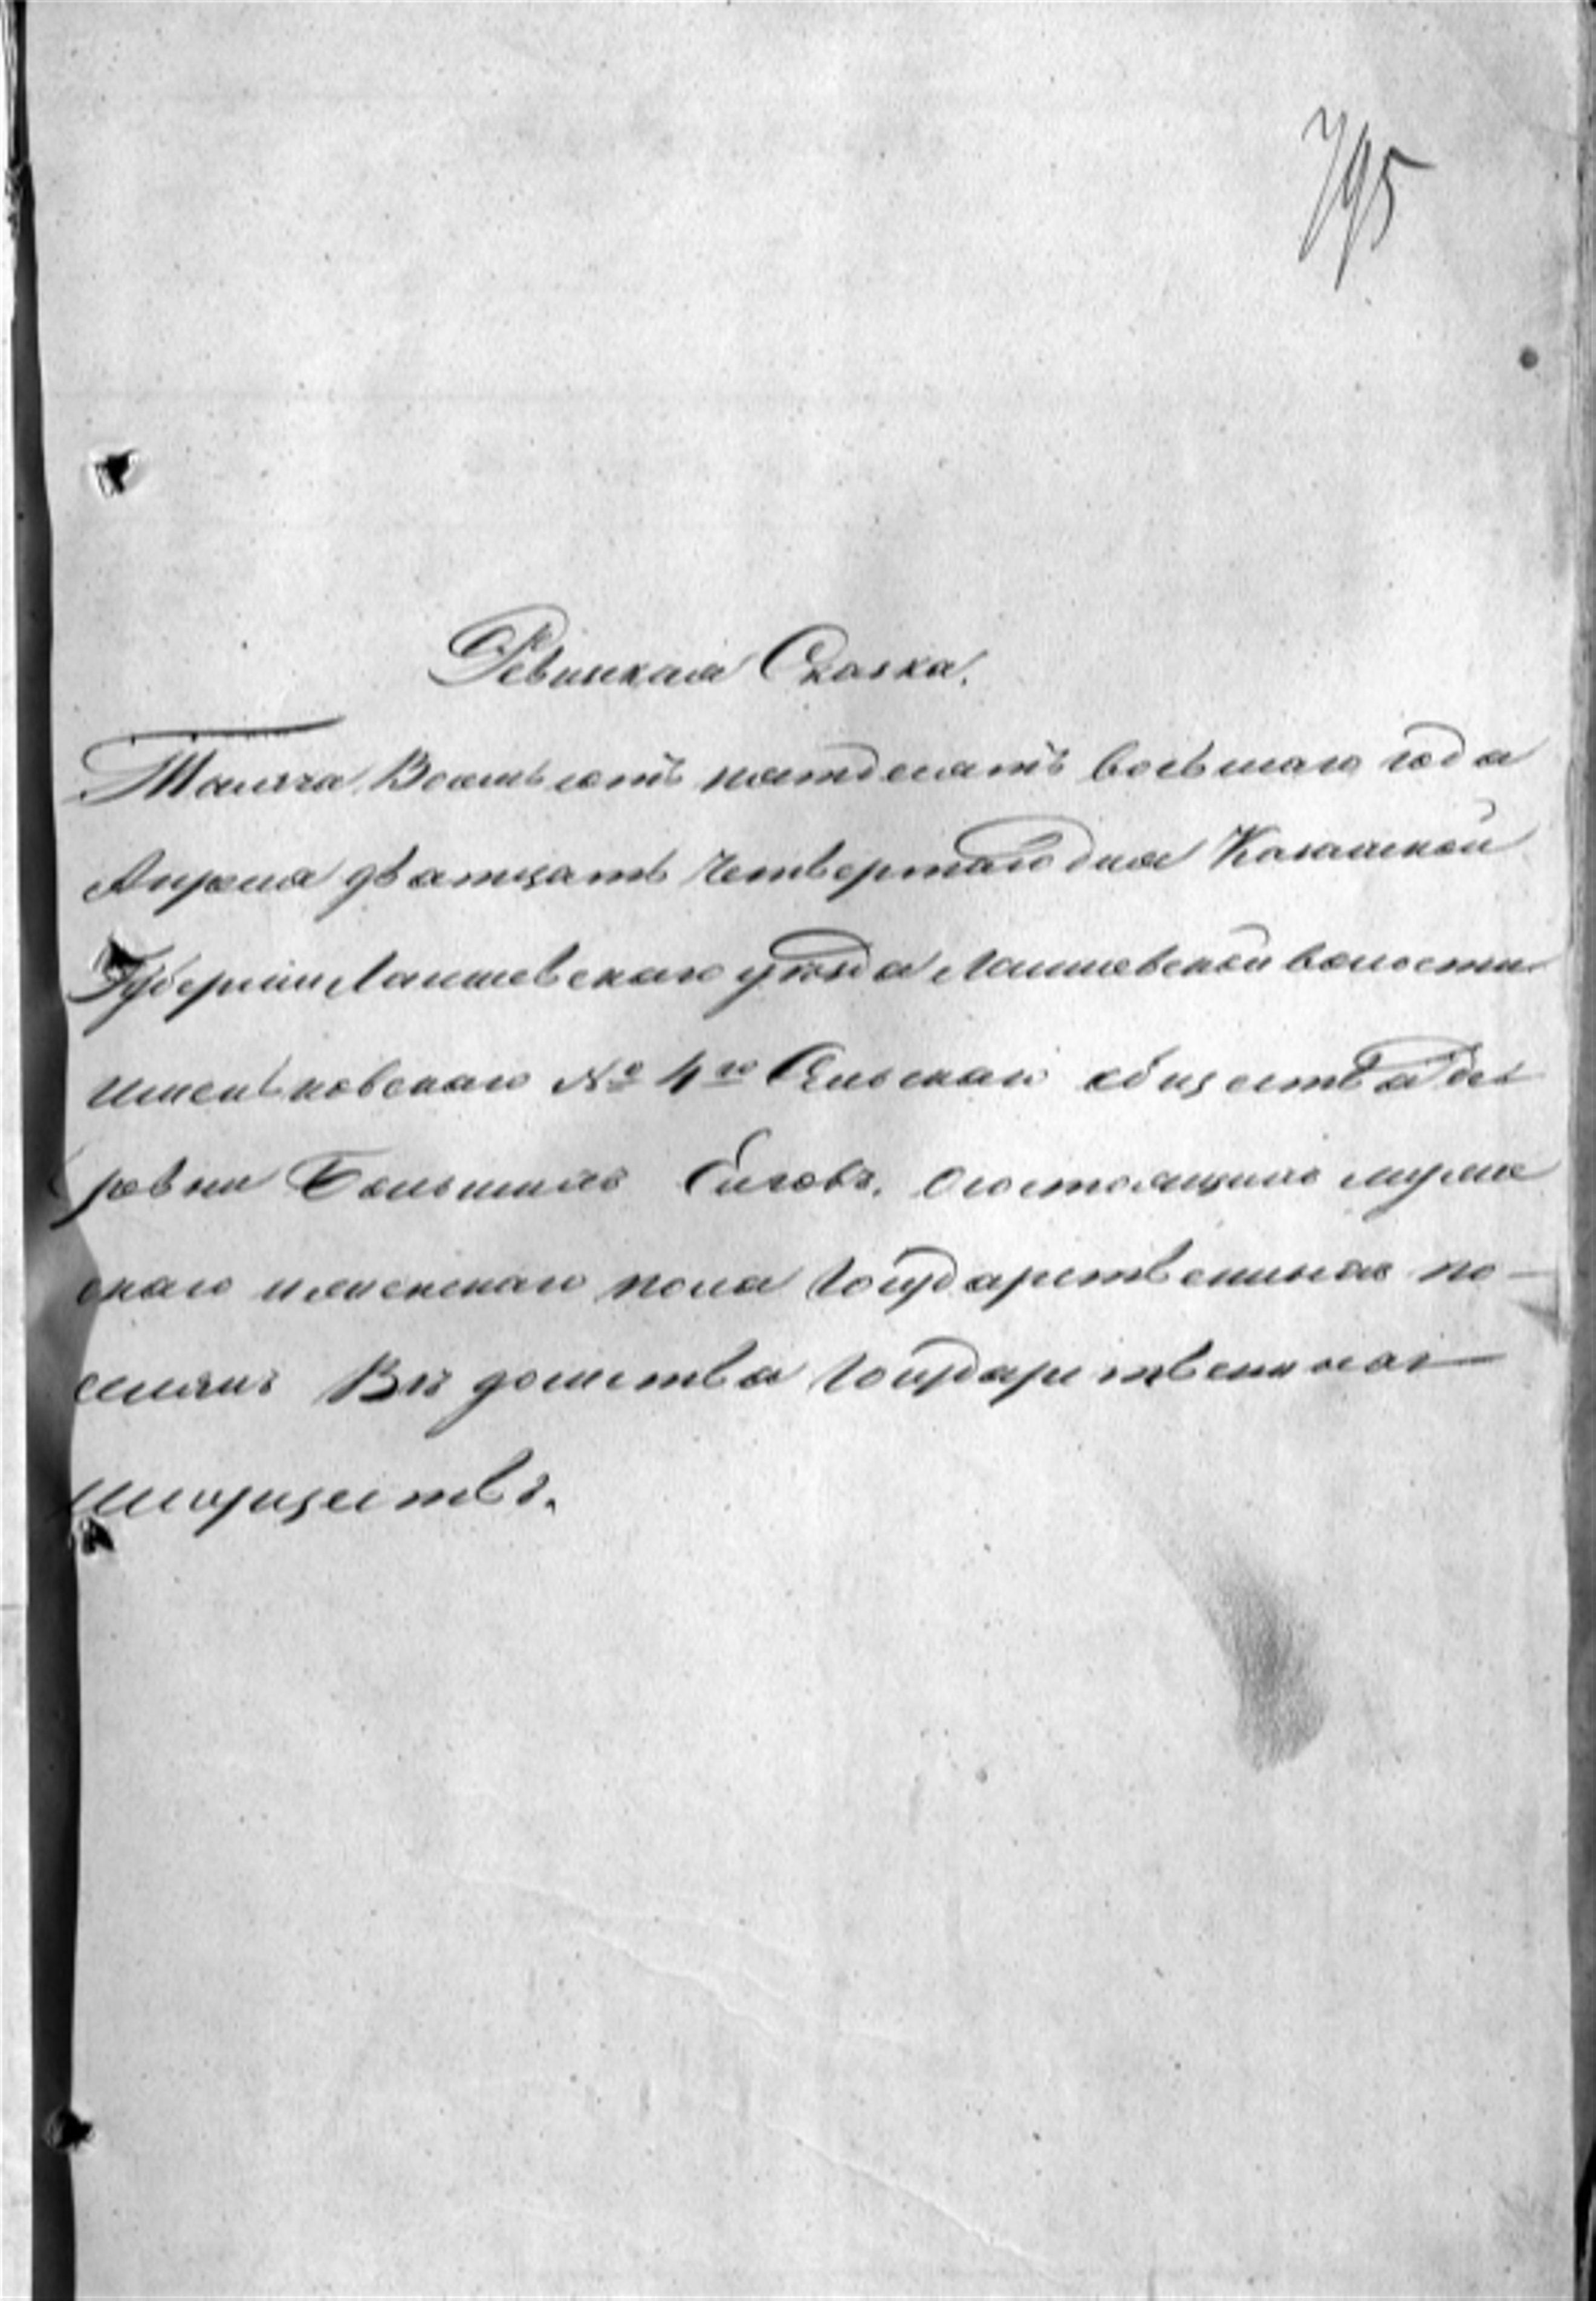 795
Ревизкая Сказка.
Тысяча Восемьсотъ пятдесятъ восьмаго года
Апреля дватцать четвертаго дня Казанской
Губерніи Лаишевскаго уѣзда Лаишевской волости
именьковскаго № 4го Сельскаго общества де
ревни Большихъ Елговъ. О состоящихъ мужс
скаго и женскаго пола Государственныхъ по-
селянъ Вѣдомства Государственныхъ
имуществъ.